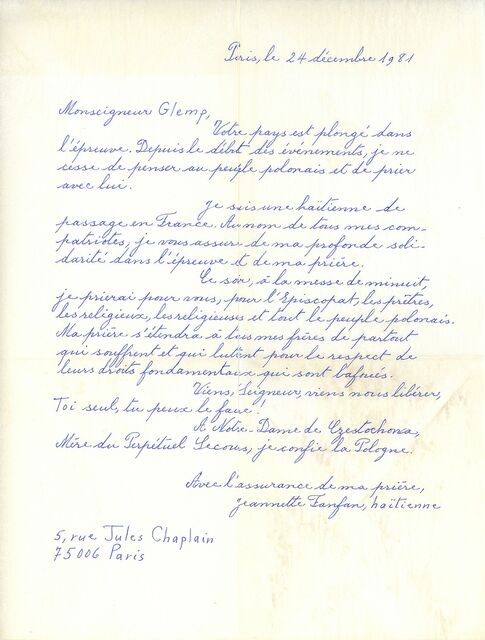 Paris, le 24 décembre 1981
Monseigneur Glemp,
Votre pays est plongé dans
l'épreuve. Depuis le début des événements, je ne
cesse de penser au peuple polonais et de prier
avec lui.
Je suis une haïtienne de
passage en France. Au nom de tous mes com-
patriotes, je vous assure de ma profonde soli-
darité dans l'épreuve et de ma prière.
Ce soir, à la messe de minuit,
je prierai pour vous, pour l'Episcopat, les prêtres,
les religieux, les religieuses et tout le peuple polonais.
Ma prière s'étendra à tous mes frères de partout
qui souffrent et qui luttent pour le respect de
leurs droits fondamentaux qui sont bafoués.
Viens, Seigneur, viens nous libérer,
Toi seul, tu peux le faire!
A Notre-Dame de Czestochowa,
Mère du Perpétuel Secours, je confie la Pologne.
Avec l'assurance de ma prière,
Jeannette Fanfan, haïtienne
5, rue Jules Chaplain
75006 Paris